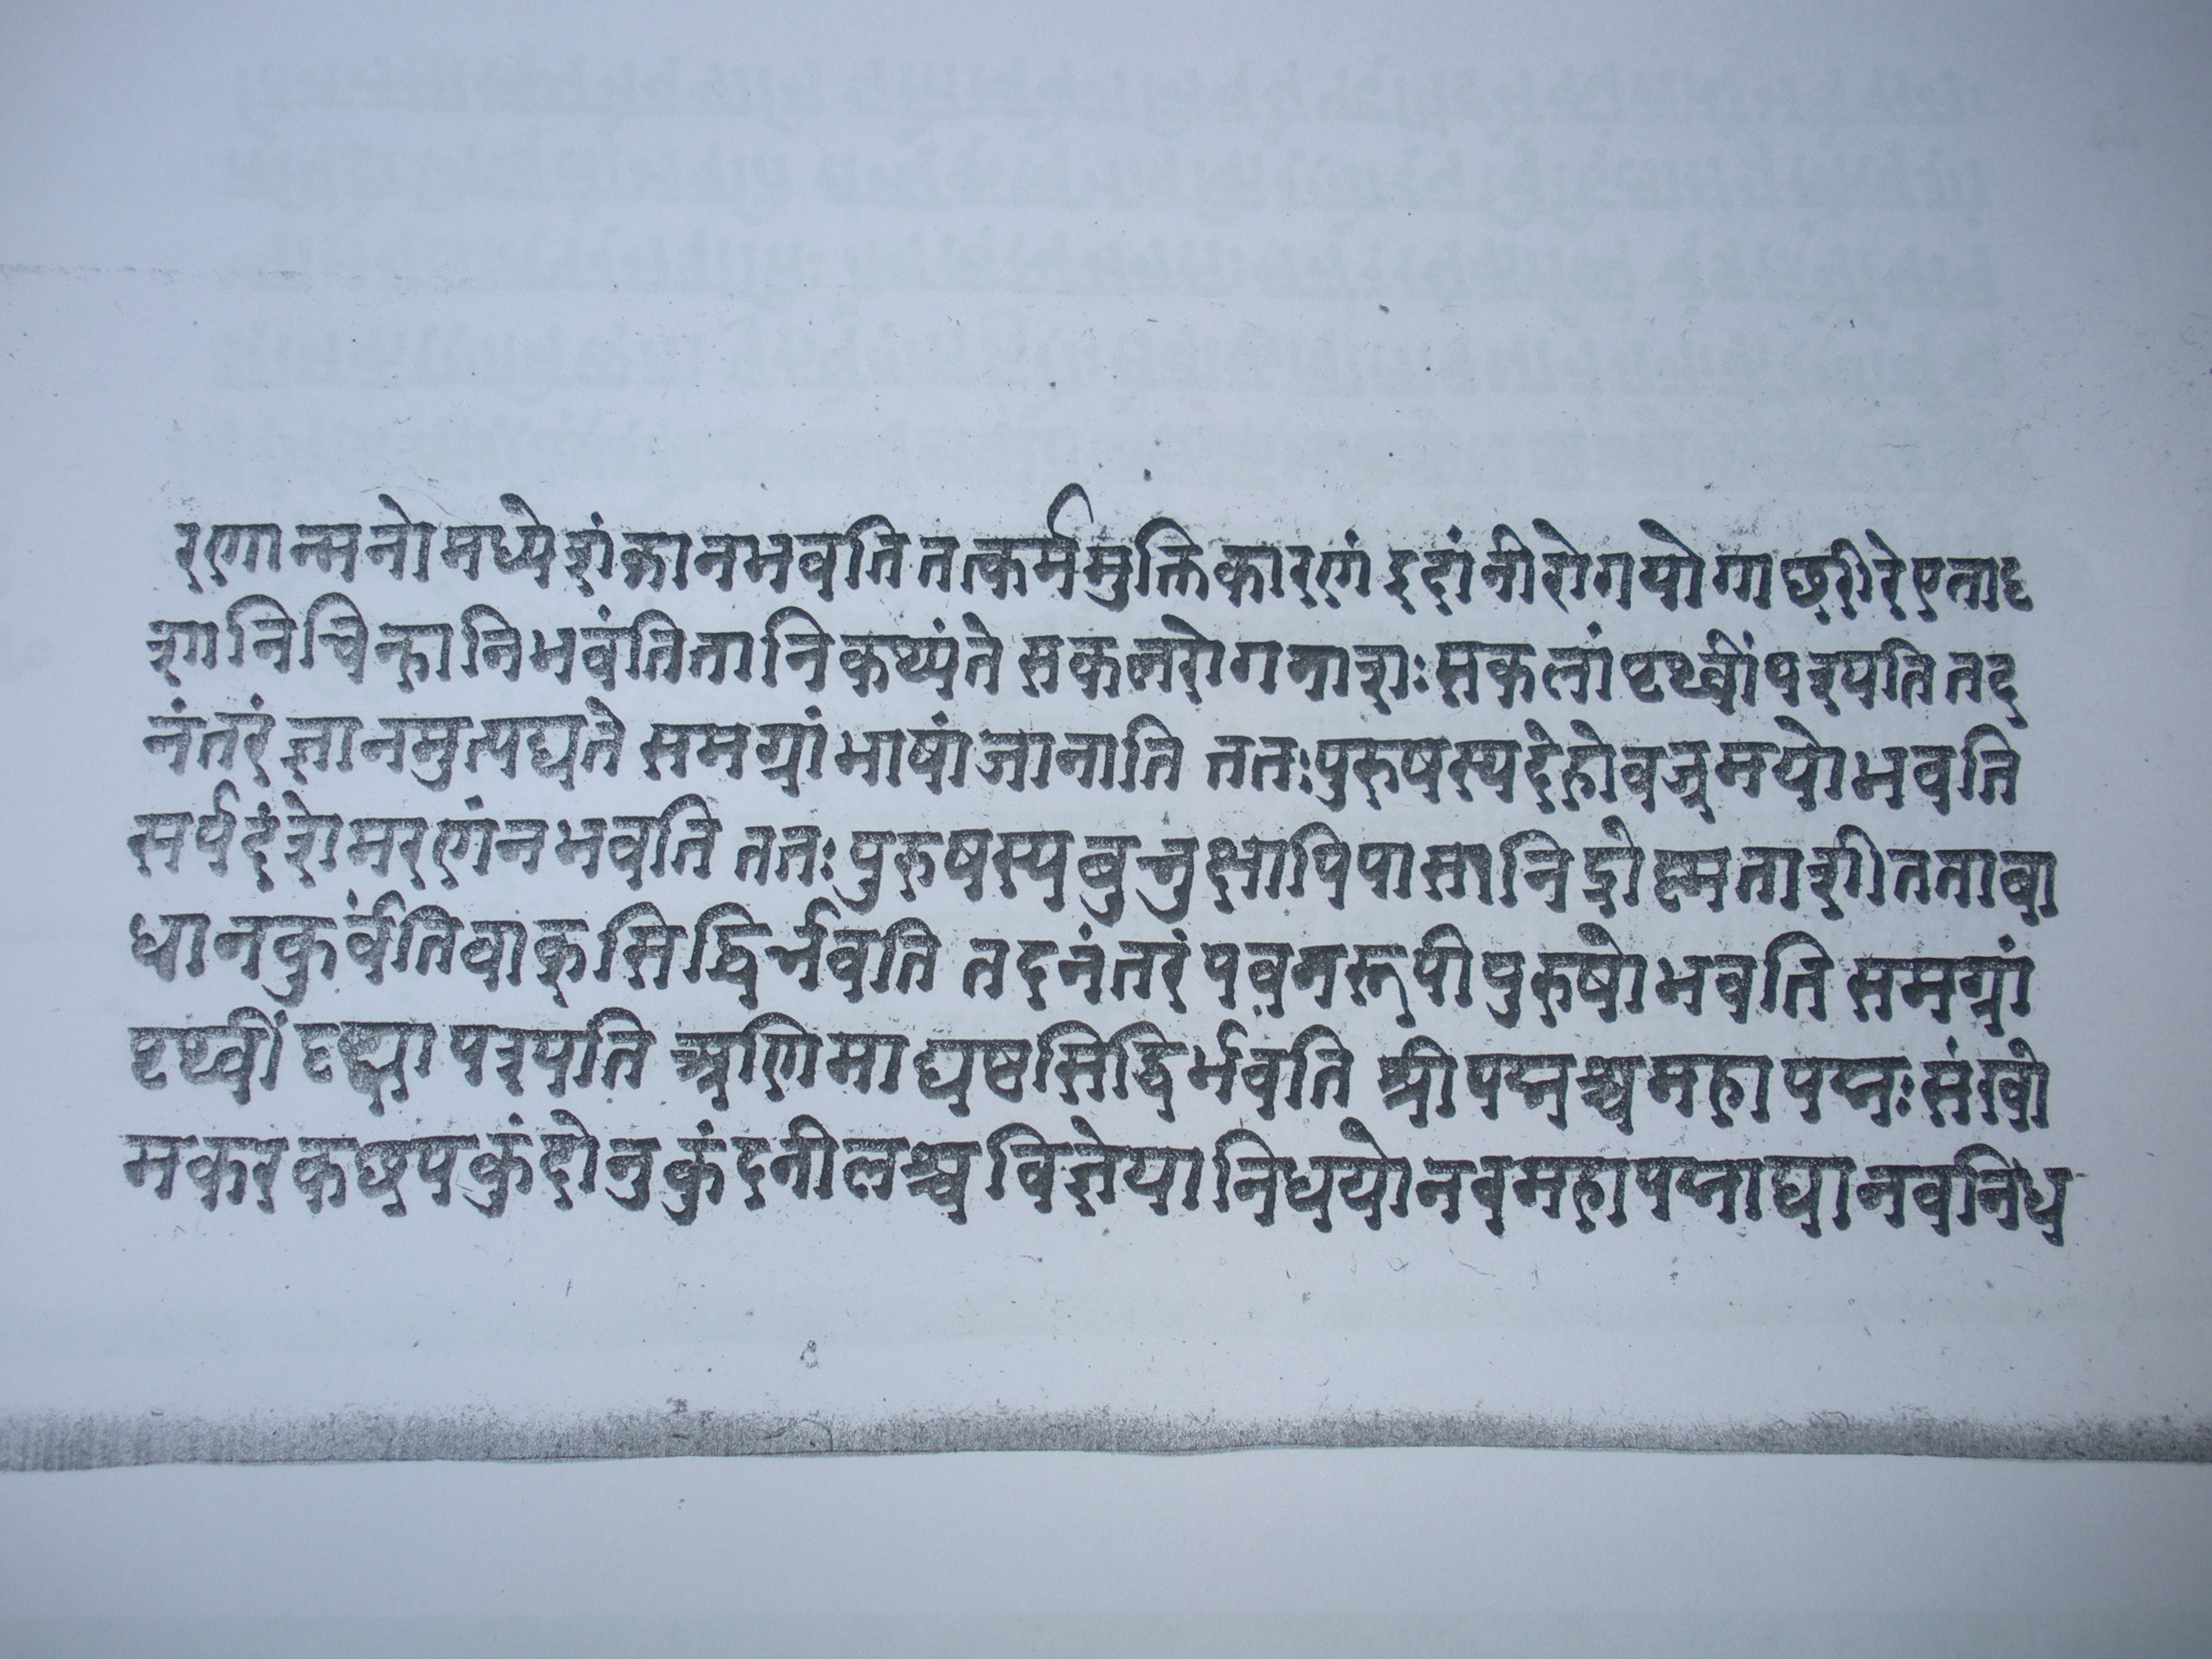 रणान्मनोमध्येशंकानभवति तत्कर्ममुक्तिकारणं इदांनीरोगयोगाछरीरेएतादृ
शानिचिन्हानिभवंतितानिकथ्यंते सकलरोगनाशः सकलां पृथ्वीं पश्यति तद
नंतरं ज्ञानमुत्पद्यते समग्रां भाषां जानाति ततः पुरुषस्य देहो वज्रमयो भवति
सर्पदंशेमरणंनभवति ततः पुरुषस्य बुभुक्षापिपासानिद्रोष्मताशीतताबा
धानकुर्वंतिवाक्सिद्धिर्भवति तदनंतरं पवनरूपीपुरुषोभवति समग्रां
पृथ्वीं दृष्ट्या पश्यति अणिमाद्यष्टसिद्धिर्भवति श्रीपद्मश्चमहापद्मः संखो
मकरकछपकुंदोमुकुंदनीलश्च विज्ञेया निधयोनवमहापद्माद्यानवनिध